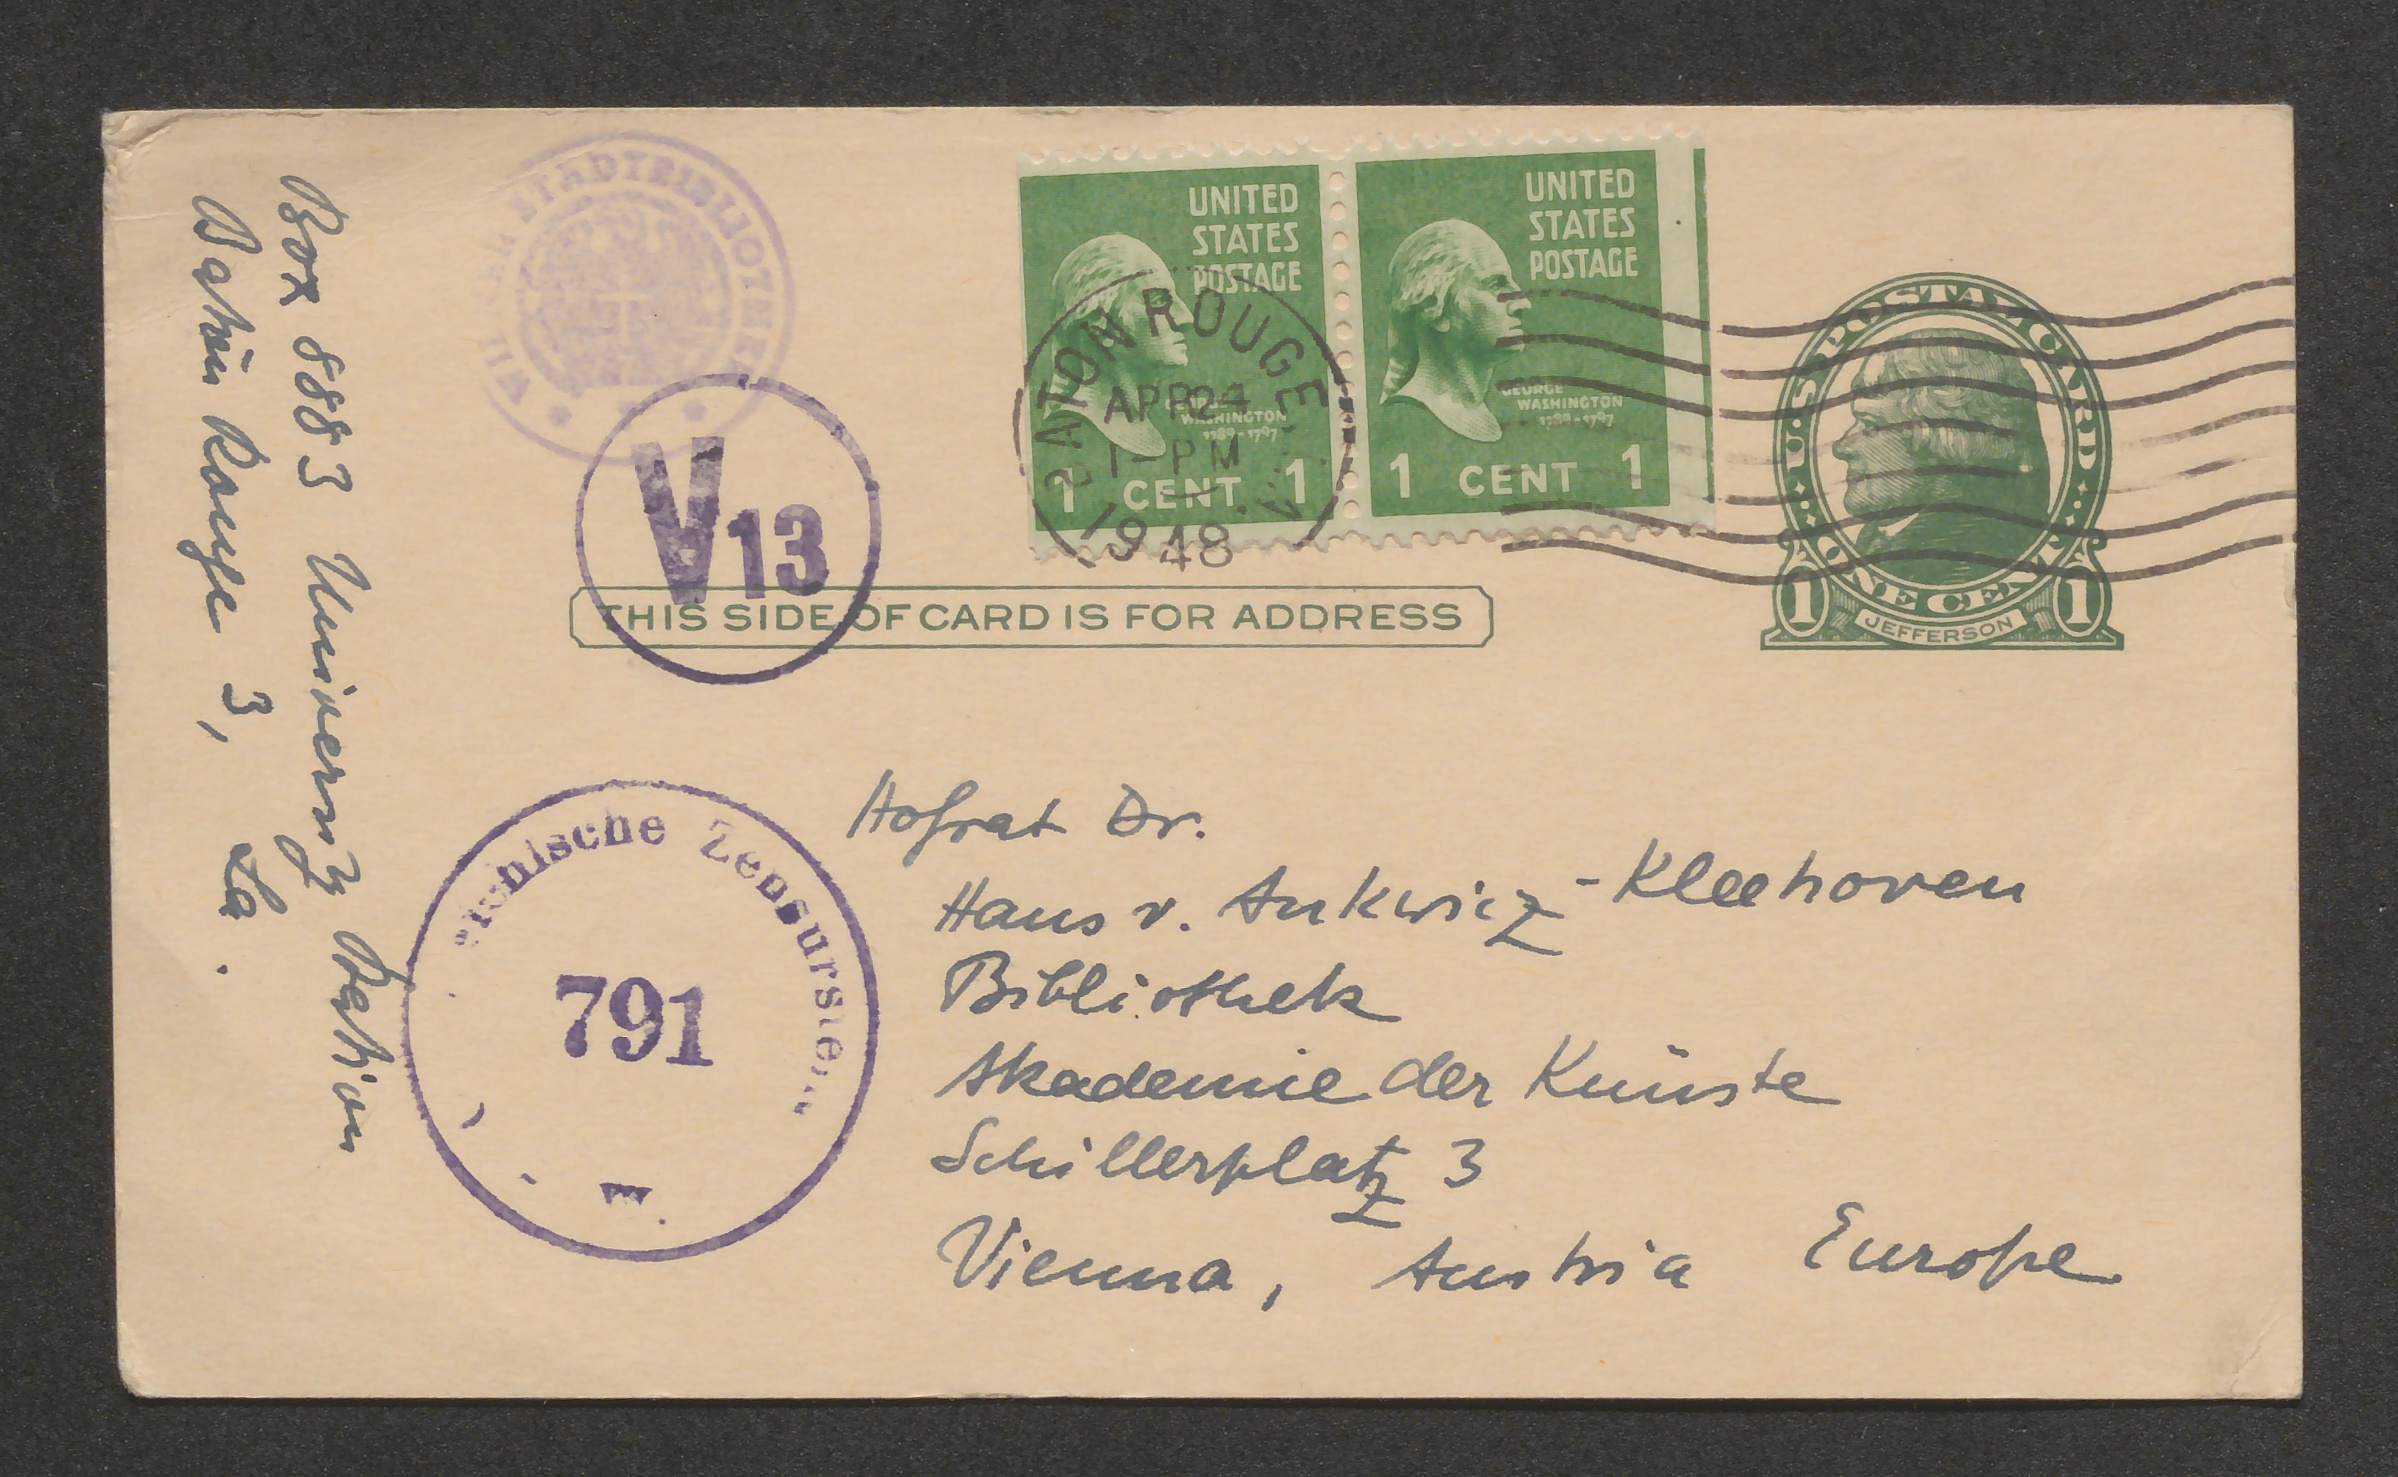 Box 8883 University Station
Baton Rouge 3, La.
WIENER STADTBIBLIOTHEK
V13
UNITED
STATES
POSTAGE
GEORGE
WASHINGTON
1789-1797
1 CENT 1
UNITED
STATES
POSTAGE
GEORGE
WASHINGTON
1789-1797
1 CENT 1
BATON ROUGE
APR 24
1-PM
1948
U.S. POSTAL CARD
ONE CENT
1 1
JEFFERSON
THIS SIDE OF CARD IS FOR ADDRESS
Zensurstelle
791
Hofrat Dr.
Hans v. Ankwicz-Kleehoven
Bibliothek
Akademie der Künste
Schillerplatz 3
Vienna, Austria Europe